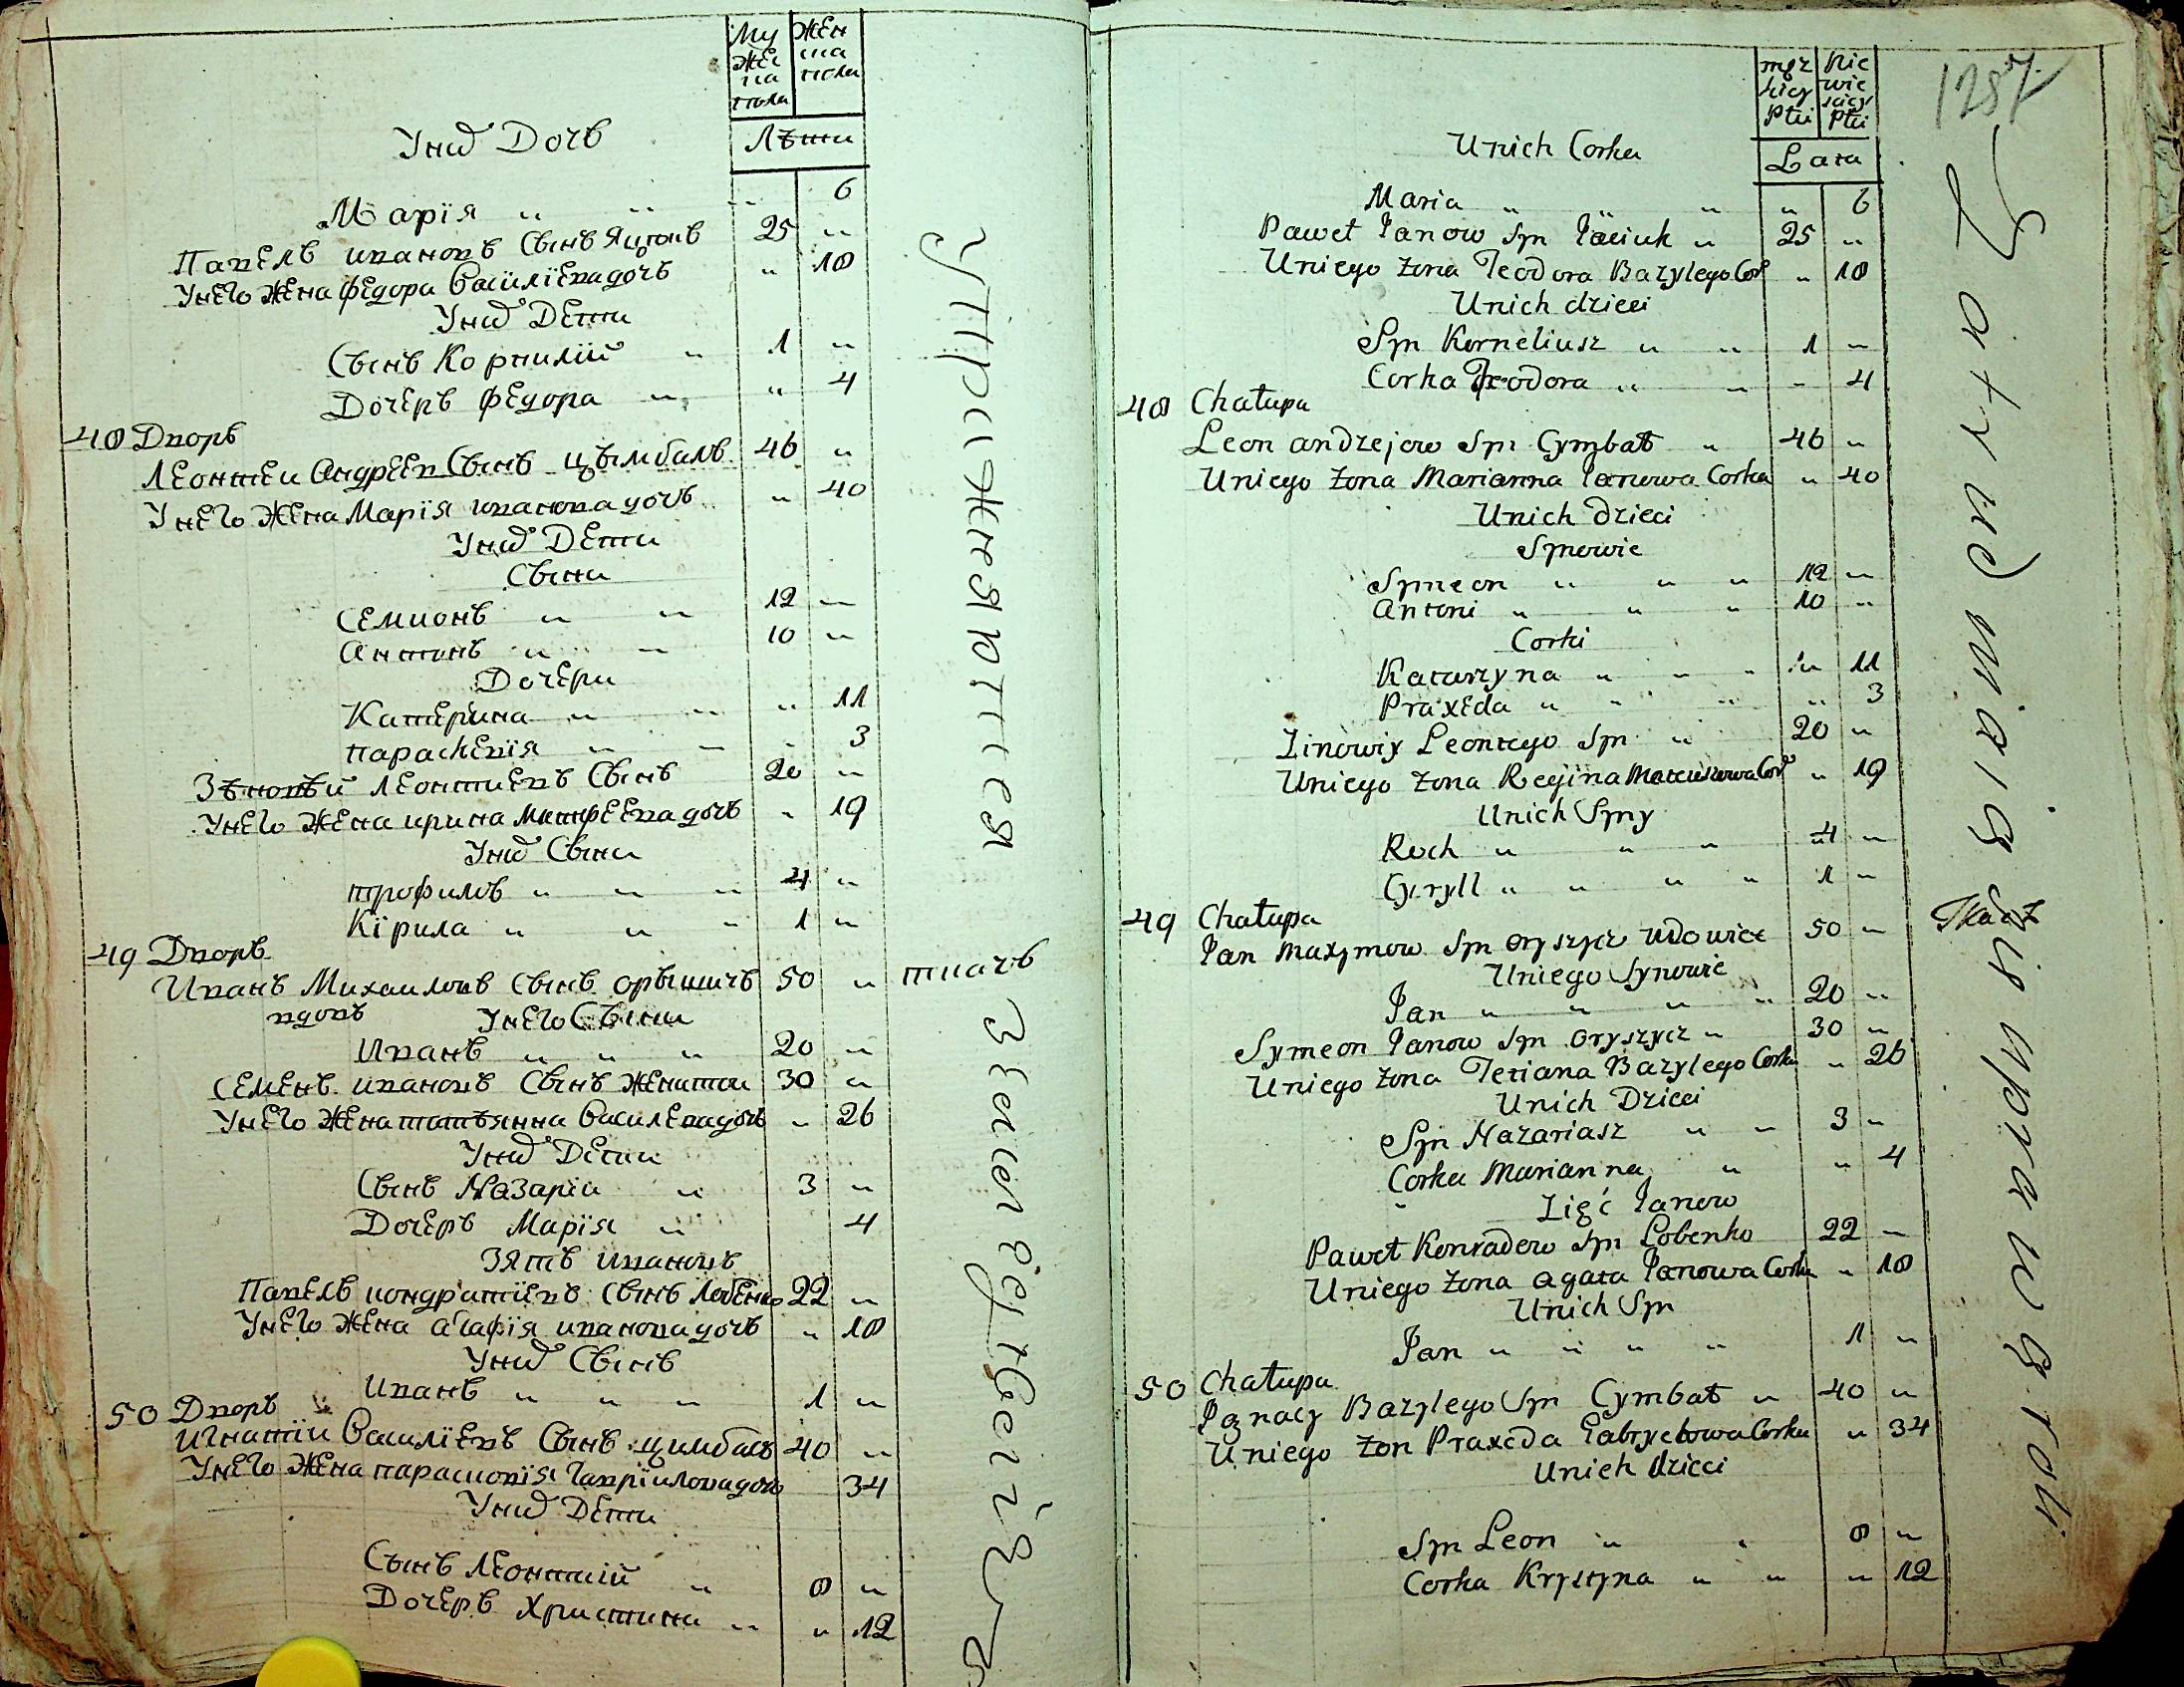 Му жес ка пола
Жен ска пола
Лѣти
Уних Дочъ
Марія " " " 6
Павелъ ивановъ Сынъ Яцюкъ 25 "
Унего Жена Федора Василіева дочъ " 18
Уних Дети
Сынъ Корнилій " 1 "
Дочеръ Федора " " 4
48 Дворъ
Леонтеи Андреевъ Сынъ цымбалъ 46 "
Унего Жена Марія иванова дочъ " 40
Уних Дети
Сыни
Семионъ " " 12 "
Антонъ " " 10 "
Дочери
Катерина " " " 11
параскевія " " " 3
Зѣновѣй Леонтиевъ Сынъ 20 "
Унего Жена ирина Матфеева дочъ " 19
Уних Сыни
трофимъ " " " 4 "
Кірила " " " 1 "
49 Дворъ
Иванъ Михаиловъ Сынъ орышичъ 50 " ткачъ
вдовъ Унего Сыни
Иванъ " " " 20 "
Семенъ ивановъ Сынъ женатои 30 "
Унего Жена татъянна Василева дочъ " 26
Уних Дети
Сынъ Назаріи " 3 "
Дочеръ Марія " 4
Зятъ ивановъ
Павелъ кондратіевъ Сынъ Лобенко 22 "
Унего Жена агафія иванова дочъ " 18
Уних Сынъ
Иванъ " " " 1 "
50 Дворъ
Игнатіи Василіевъ Сынъ цимбалъ 40 "
Унего Жена парасковія Гавріилова дочъ 34
Уних Дети
Сынъ Леонтій " 8 "
Дочеръ Христина " " 12
упражняютися
128
męz kiey Płci
Nie wie sciey Płci
Lata
Unich Corka
Maria " " " 6
Paweł Janow Syn Jaciuk " 25 "
Uniego Zona Teodora Bazylego Cor " 18
Unich dzieci
Syn Korneliusz " " 1 "
Corka Teodora " " " 4
48 Chałupa
Leon andrzejow Syn Cymbał " 46 "
Uniego Zona Marianna Janowa Corka " 40
Unich Dzieci
Synowie
Symeon " " " 12 "
Antoni " " " 10 "
Corki
Katarzyna " " " " 11
Praxeda " " " " 3
Zinowiy Leontego Syn " 20 "
Uniego Zona Regina Mateuszowa Cor " 19
Unich Syny
Roch " " " 4 "
Cyryll " " " " 1 "
49 Chałupa
Jan Maxymow Syn Oryszycz Wdowiec 50 " Tkacz
Uniego Synowie
Jan " " " " 20 "
Symeon Janow Syn Oryszycz " 30 "
Uniego Zona Tetiana Bazylego Corka " 26
Unich Dzieci
Syn Nazariasz " " 3 "
Corka Marianna " " 4
Zięć Janow
Paweł Konradow Syn Lobenko 22 "
Uniego Zona Agata Janowa Corka " 18
Unich Syn
Jan " " " " 1 "
50 Chałupa
Jgnacy Bazylego Syn Cymbał " 40 "
Uniego Zon Praxeda Gabryelowa Corka " 34
Unich Dzieci
Syn Leon " " 8 "
Corka Krystyna " " " 12